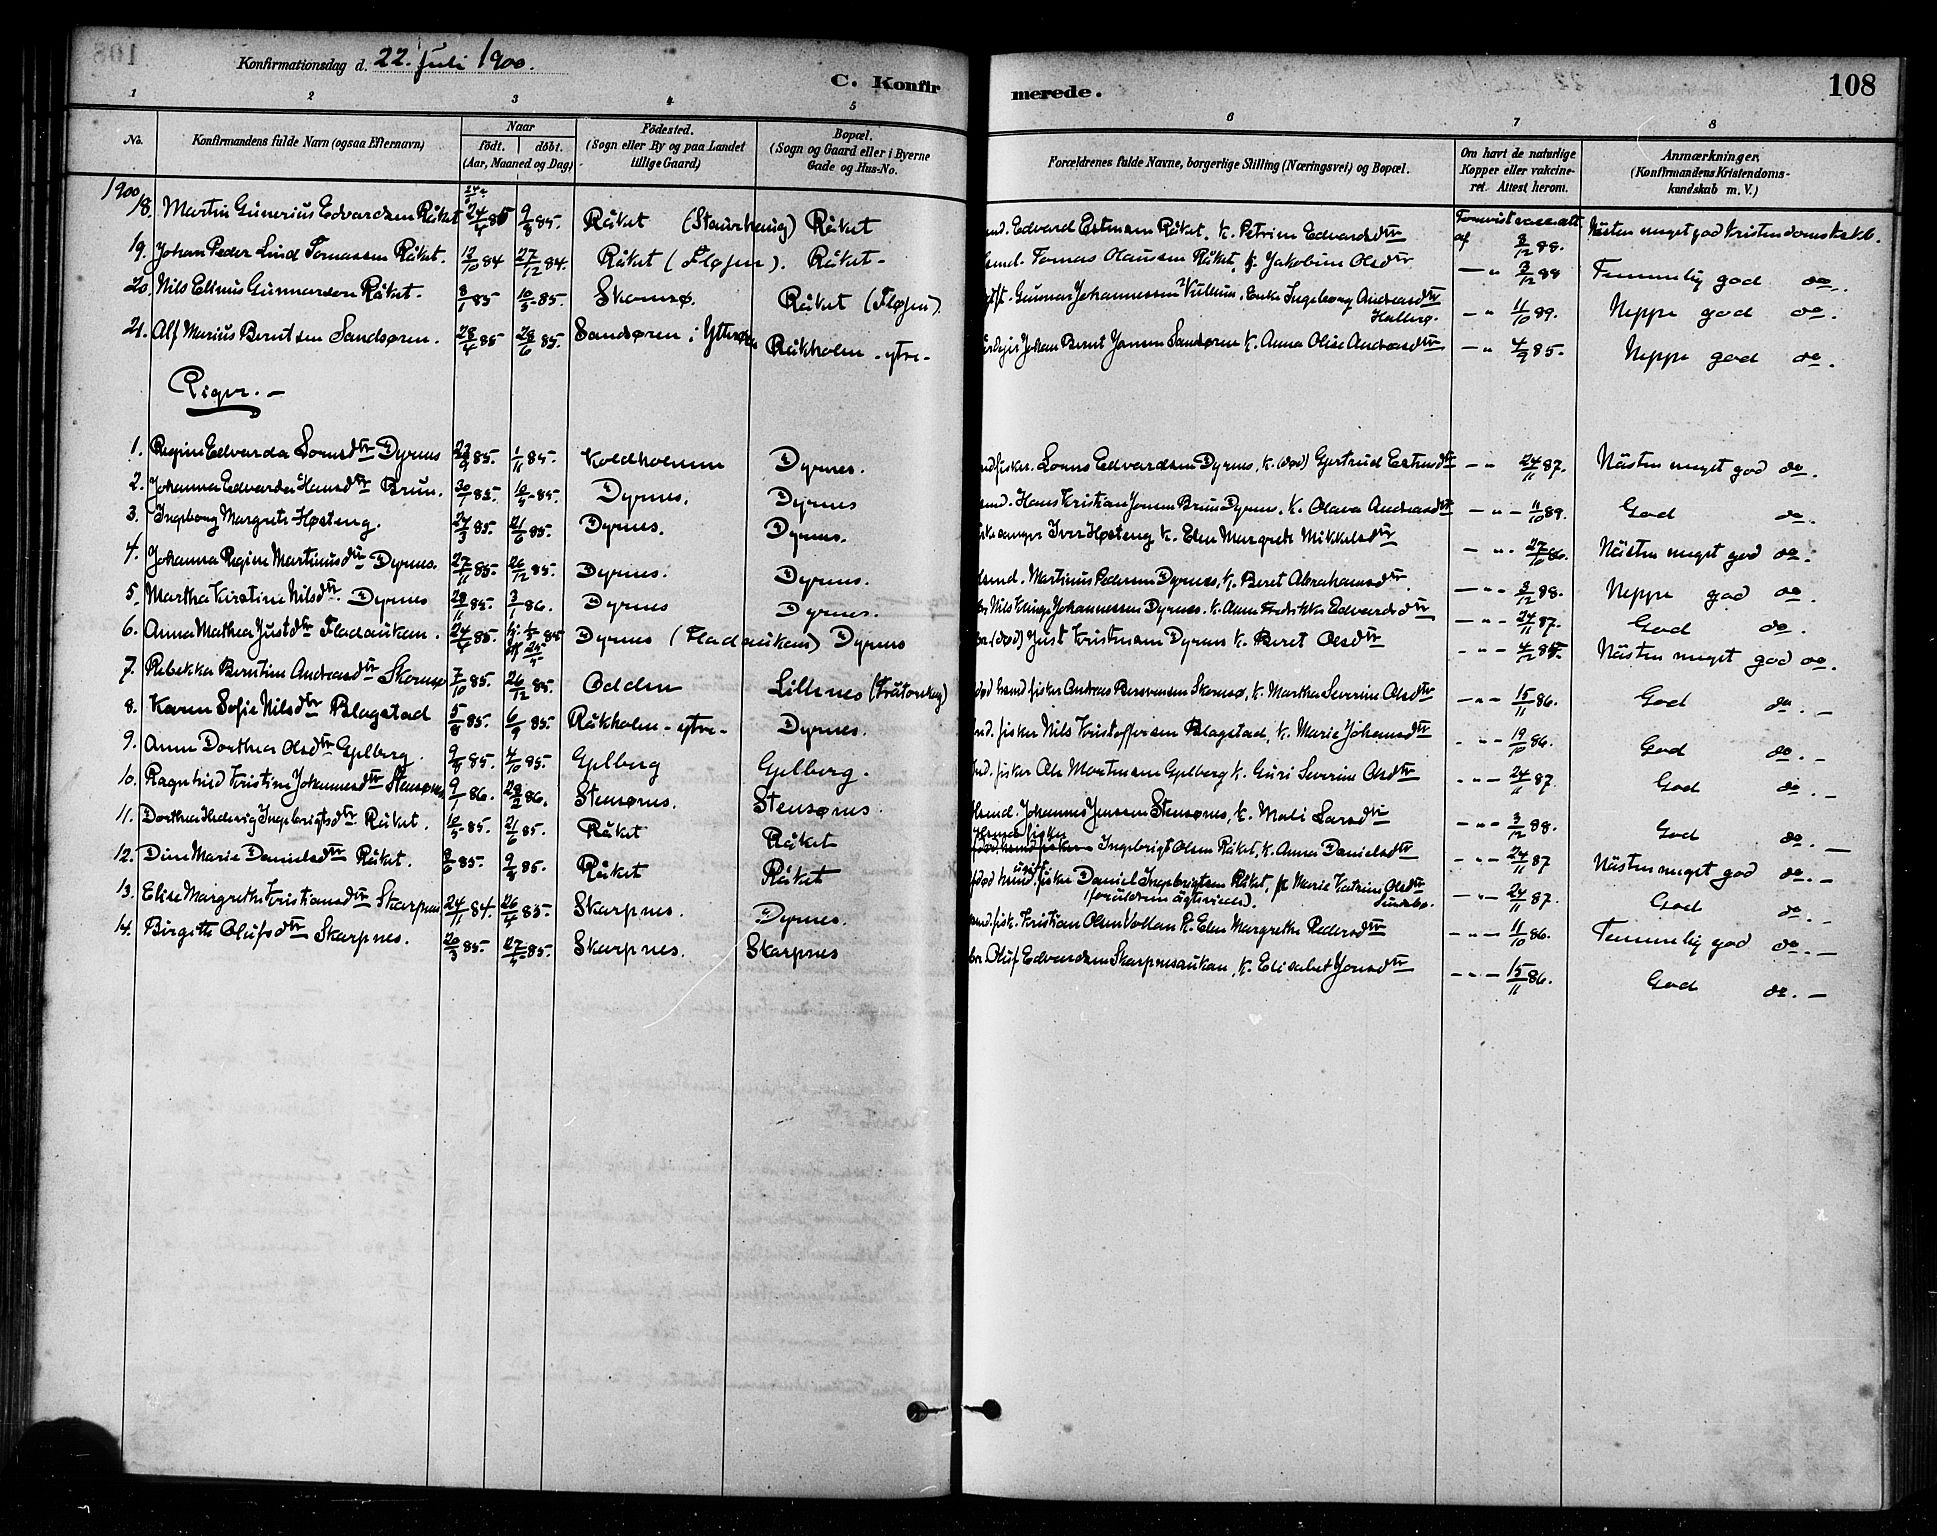 Konfirmationsdag d. 22. Juli 1900.
C. Konfirmerede.
108
1 2 3 4 5 6 7 8
No.
Konfirmandens fulde Navn (ogsaa Efternavn)
Naar
födt. döbt.
(Aar, Maaned og Dag)
Födested.
(Sogn eller By og paa Landet
tillige Gaard)
Bopæl.
(Sogn og Gaard eller i Byerne
Gade og Hus-No.
Forældrenes fulde Navne, borgerlige Stilling (Næringsvei) og Bopæl.
Om havt de naturlige
Kopper eller vakcine-
ret. Attest herom.
Anmærkninger.
(Konfirmandens Kristendoms-
kundskab m. V.)
1900
18. Martin Gunerius Edvardsen Råket 24/4 85 9/8 85. Råket (Staurhaug) Råket Edvard Estmann Råket. K. Petrine Edvardsdtr af 3/12 88. Nästen meget god Kristendomskskb.
19. Johan Peder Lind Tomassen Råket. 12/10 84 27/12 84. Råket (Fløjen). Råket- Tomas Olaussen Råket, K. Jakobine Olsdtr - " 3/12 88 Temmelig god do.
20. Nils Elknus Gunnarsen Råket. 8/1 85 10/5 85. Skomsø. Råket (Fløjen). Gunnar Johannessen Kullum, Enke Ingeborg Andreasdtr
Hallerø. - " 11/10 89. Neppe god do.
21. Alf Marius Berntsen Sandsøren. 28/4 85 28/6 85. Sandsøren i Ytterøen Råkholm - ytre - Johan Bernt Jonsen Sandsøren K. Anna Olise Andreasdtr - " 4/9 85. Neppe god do.
Piger. -
1. Regine Edvarda Lornsdtr Dyrnes 22/9 85. 1/11 85. Koldholmen Dyrnes. Lorns Edvardsen Dyrnes, K. (død) Gjertrud Estensdtr - " 24/11 87. Nästen meget god do.
2. Johanna Edvarda Hansdtr Brun. 30/1 85. 10/5 85. Dyrnes. Dyrnes Hans Kristian Jonsen Brun Dyrnes, K. Olava Andreasdtr - " - 11/10 89. God do.
3. Ingeborg Margrete Høsteng. 24/3 85. 21/6 85. Dyrnes. Dyrnes. Iver Høsteng K. Elen Margrete Mikkelsdtr - " 27/10 86. Nästen meget god do.
4. Johanna Regine Martinusdtr Dyrnes. 27/11 85. 26/12 85. Dyrnes. Dyrnes. Martinus Pedersen Dyrnes, K. Beret Abrahamsdtr. - " - 3/12 88. Neppe god do.
5. Martha Kirstine Nilsdtr. Dyrnes 28/11 85. 3/1 86. Dyrnes Dyrnes. Nils Klinge Johannessen Dyrnes. K. Anne Fredrikke Edvardsdtr - " - 24/11 87. God do.
6. Anna Mathea Justdtr Fladaukan. 24/4 85. Dyrnes (Fladaukan) Dyrnes (død) Just Kristmann Dyrnes K. Beret Olsdtr - " - 4/12 85. Nästen meget god do.
7. Rebekka Berntine Andreasdtr Skomsø 7/10 85. 26/12 85. Odden Lillenes død husmd fisker Andreas Bersvensen Skomsø, K. Martha Severine Olsdtr - " - 15/11 86. God do. -
8. Karen Sofie Nilsdtr Blagstad 5/8 85. 6/9 85. Råkholm - ytre - Dyrnes. fisker Nils Kristoffersen Blagstad, K. Marie Johansdtr - " - 19/10 86. God do. -
9. Anne Dorthea Olsdtr Gjelberg. 9/8 85. 4/10 85. Gjelberg Gjelberg. fisker Ole Mortmann Gjelberg K. Guri Severine Olsdtr - " - 24/11 87. God do. -
10. Ragnhild Kristine Johannesdtr Stensønes 9/1 86. 28/2 86. Stensønes. Stensønes Johannes Jenssen Stensønes, K. Mali Larsdtr - " - 3/12 88. God do. -
11. Dorthea Hedevig Ingebrigtsdtr. Råket. 10/5 85. 21/6 85. Råket Råket Husmd fisker Ingebrigt Olsen Råket, K. Anna Danielsdtr - " - 24/11 87 Nästen meget god do. -
12. Dine Marie Danielsdtr Råket. 8/6 85. 9/8 85. Råket Råket død husmd. fisker Daniel Ingebrigtsen Råket, fr Marie Katrine Olsdtr
(forældrene ägteviede). - " - 24/11 87. God do. -
13. Elise Margrethe Kristiansdtr Skarpnes 24/11 84. 26/4 85. Skarpnes. Dyrnes. fisk. Kristian Olsen Vollan K. Elen Margrethe Pedersdtr - " - 11/10 86. Temmelig god do. -
14. Birgitte Olufsdtr Skarpnes. 20/3 85. 27/4 85. Skarpnes. Skarpnes Oluf Edvardsen Skarpnesaukan, K. Elisabet Jonsdtr - " - 15/11 86. God do. -